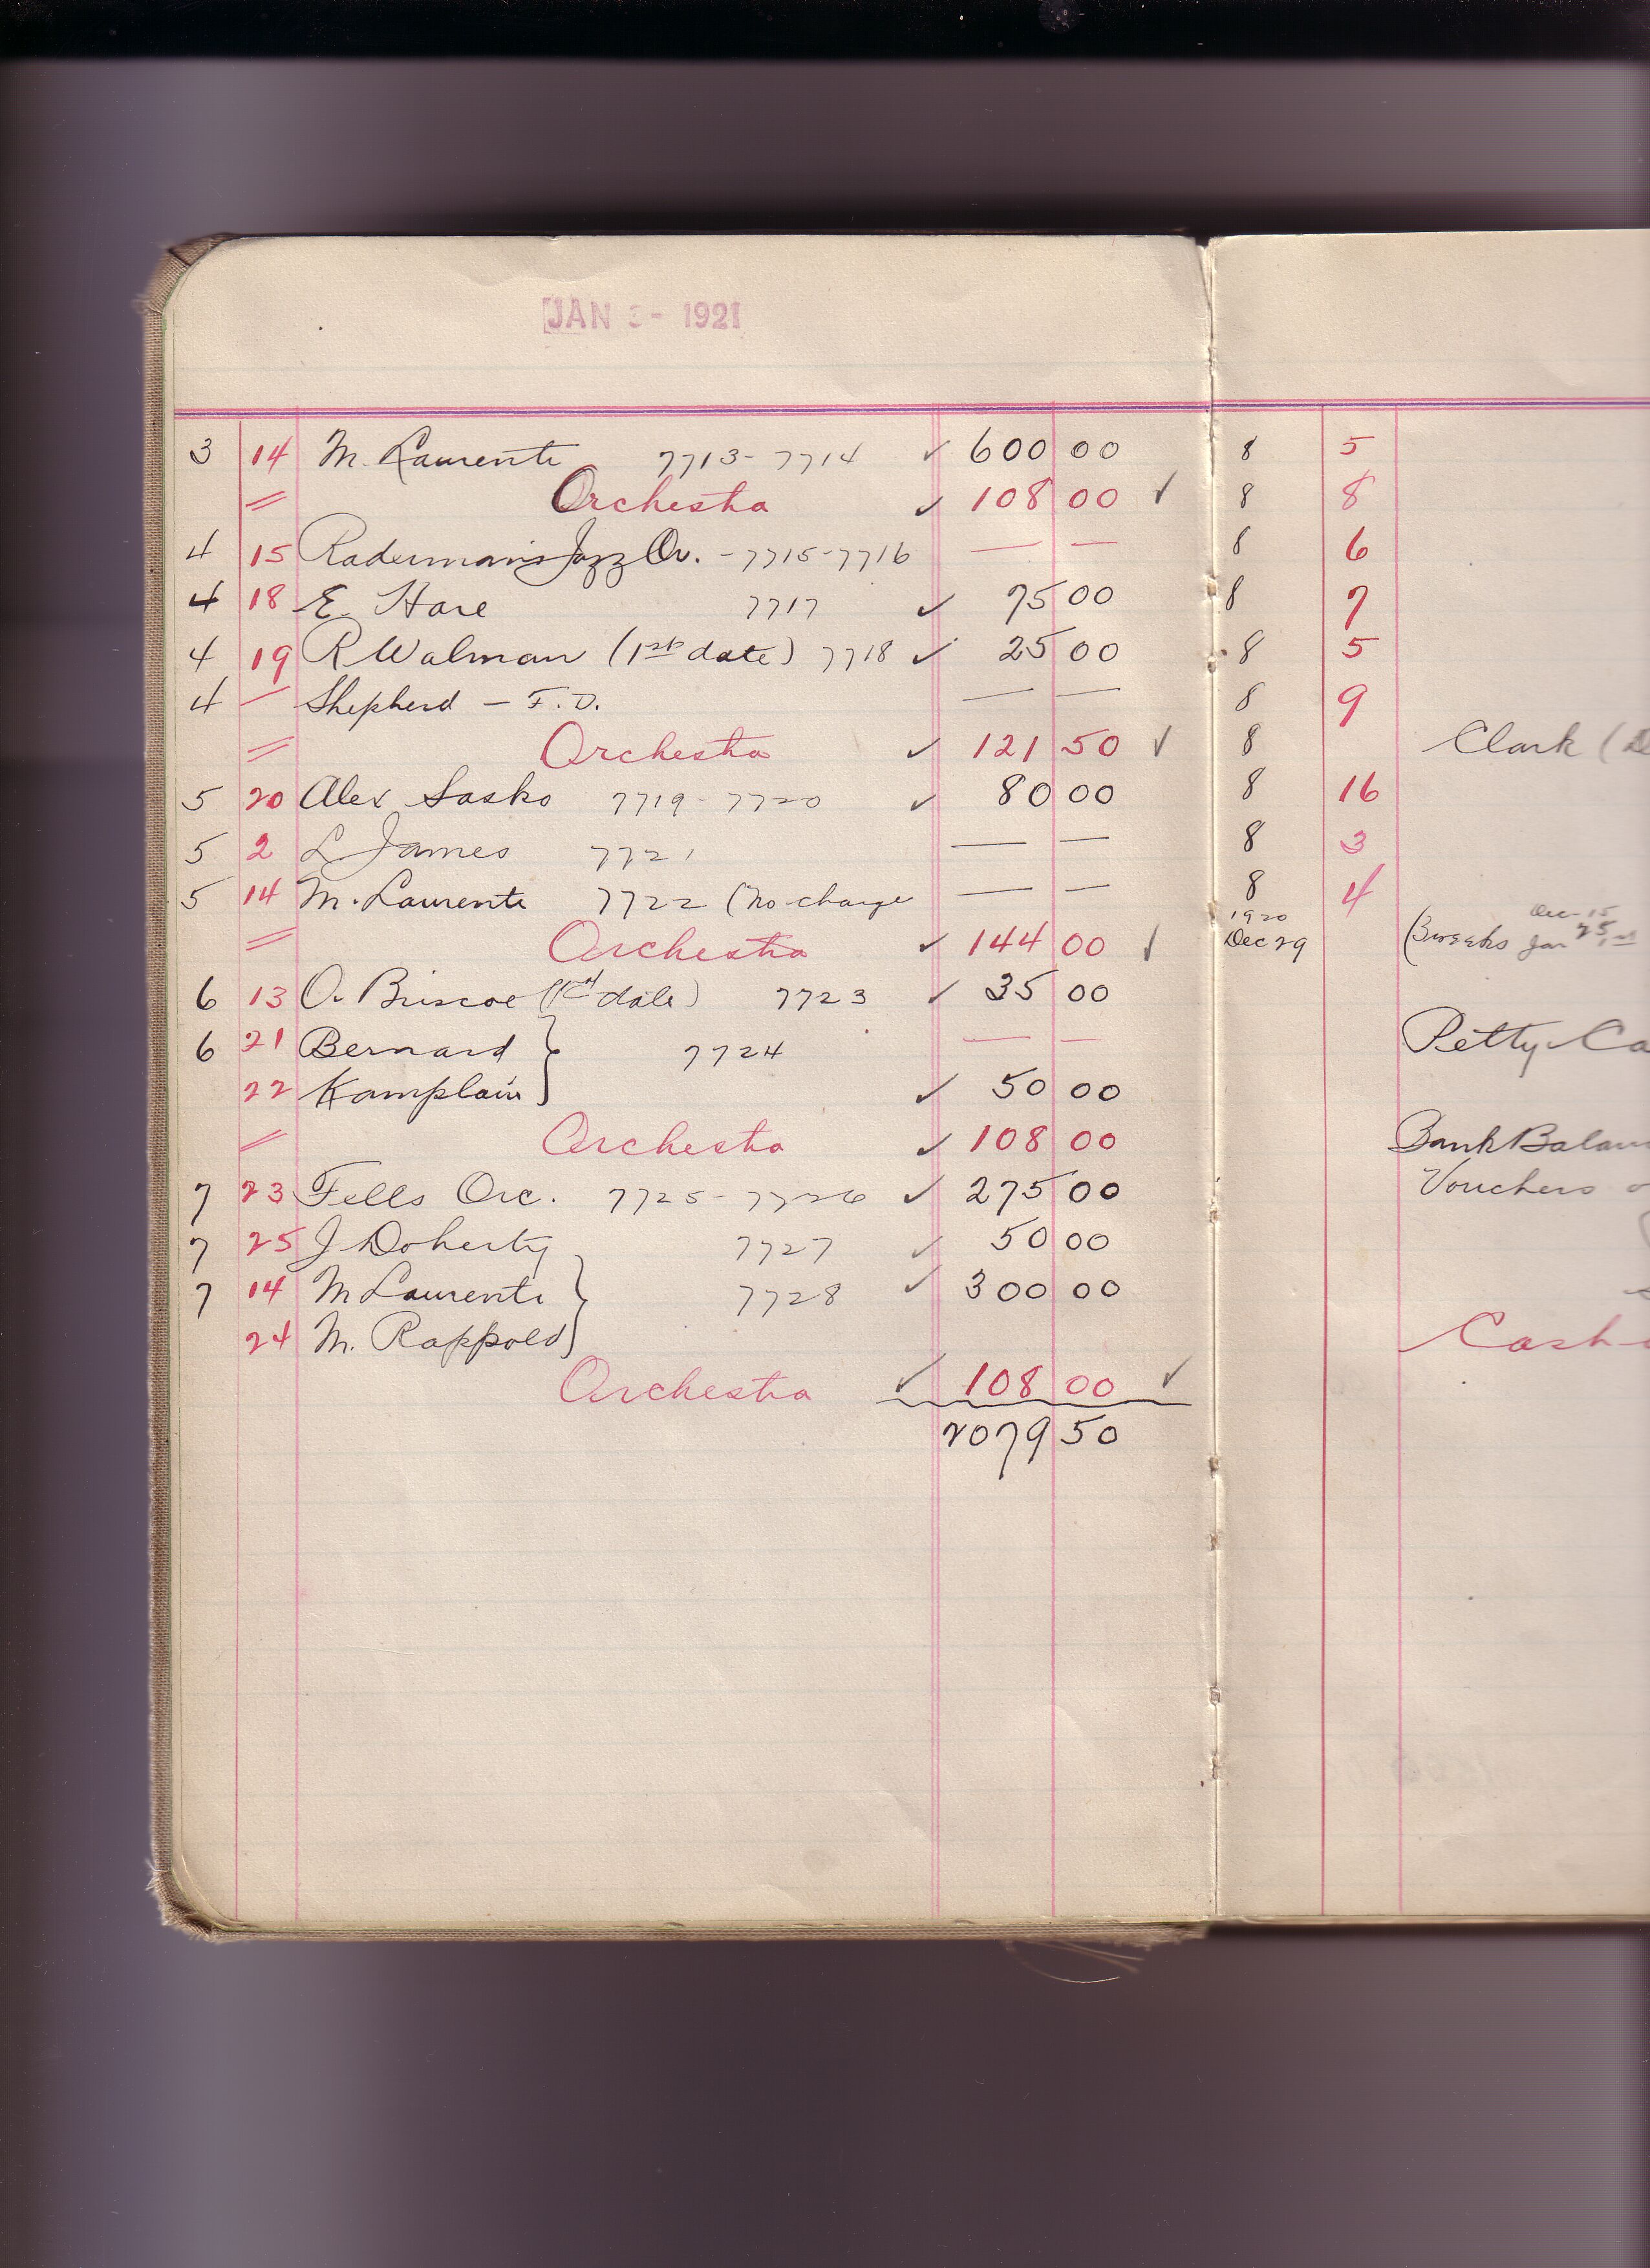 JAN 3 - 1921
3 14 M. Laurenti 7713 - 7714 ✓ 600 00
= Orchestra ✓ 108 00 ✓
4 15 Raderman's Jazz Or. - 7715 - 7716 — —
4 18 E. Hare 7717 ✓ 75 00
4 19 R Walman (1st date) 7718 ✓ 25 00
4 — Shepherd — F. O. — —
= Orchestra ✓ 121 50 ✓
5 20 Alex Sasko 7719 - 7720 ✓ 80 00
5 2 L James 7721 — —
5 14 M. Laurenti 7722 (No charge — —
= Orchestra ✓ 144 00 ✓
6 13 O. Briscoe (1st date) 7723 ✓ 35 00
6 21 Bernard } 7724 — —
22 Kamplain } ✓ 50 00
= Orchestra ✓ 108 00
7 23 Fells Orc. 7725 - 7726 ✓ 275 00
7 25 J Doherty 7727 ✓ 50 00
7 14 M Laurenti } 7728 ✓ 300 00
24 M. Rappold }
Orchestra ✓ 108 00 ✓
2079 50
8 5
8 8
8 6
8 7
8 5
8 9
8 Clark (
8 16
8 3
8 4
1920 Dec - 15
Dec 29 (3 weeks Jan
Petty Ca
Bank Balan
Vouchers o
Cash